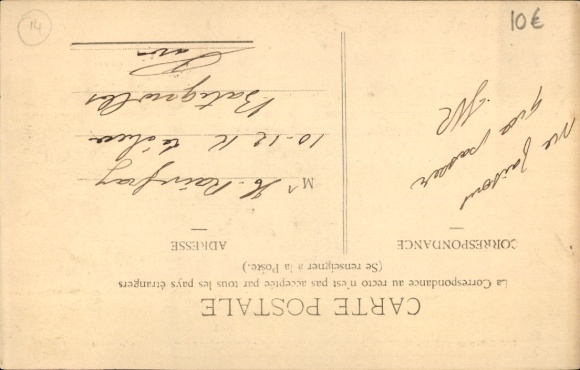 14
10€
CARTE POSTALE
La Correspondance au recto n'est pas acceptée par tous les pays étrangers
(Se renseigner à la Poste.)
CORRESPONDANCE
ADRESSE
ne faisons
que passer
Mr H.
10-12 R
Batignolles
Paris